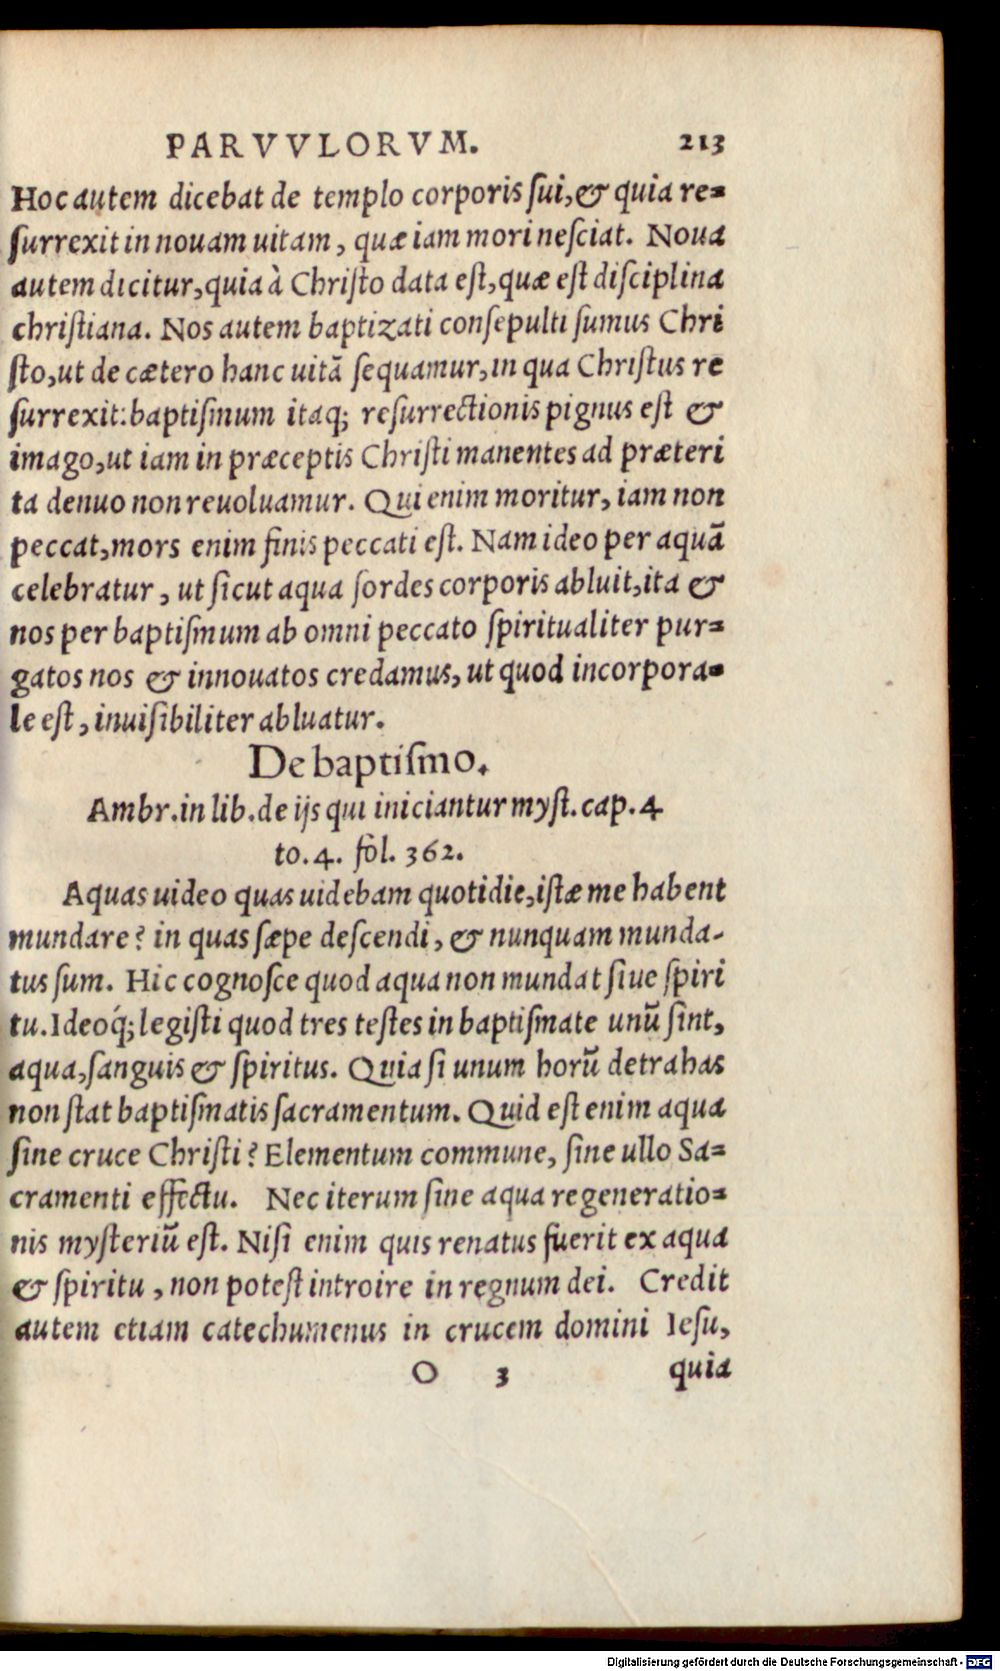 PARVVLORVM. 213
Hoc autem dicebat de templo corporis ſui, & quia re=
ſurrexit in nouam uitam, quæ iam mori neſciat. Noua
autem dicitur, quia à Chriſto data eſt, quæ eſt diſciplina
chriſtiana. Nos autem baptizati conſepulti ſumus Chri
ſto, ut de cætero hanc uitã ſequamur, in qua Chriſtus re
ſurrexit: baptiſmum itaq; reſurrectionis pignus eſt &
imago, ut iam in præceptis Chriſti manentes ad præteri
ta denuo non reuoluamur. Qui enim moritur, iam non
peccat, mors enim finis peccati eſt. Nam ideo per aquã
celebratur, ut ſicut aqua ſordes corporis abluit, ita &
nos per baptiſmum ab omni peccato ſpiritualiter pur=
gatos nos & innouatos credamus, ut quod incorpora=
le eſt, inuiſibiliter abluatur.
De baptiſmo.
Ambr. in lib. de ijs qui iniciantur myſt. cap. 4
to. 4. fol. 362.
Aquas uideo quas uidebam quotidie, iſtæ me habent
mundare? in quas ſæpe deſcendi, & nunquam munda-
tus ſum. Hic cognoſce quod aqua non mundat ſiue ſpiri
tu. Ideoq́; legiſti quod tres teſtes in baptiſmate unũ ſint,
aqua, ſanguis & ſpiritus. Quia ſi unum horũ detrahas
non ſtat baptiſmatis ſacramentum. Quid eſt enim aqua
ſine cruce Chriſti? Elementum commune, ſine ullo Sa=
cramenti effectu. Nec iterum ſine aqua regeneratio=
nis myſteriũ eſt. Niſi enim quis renatus fuerit ex aqua
& ſpiritu, non poteſt introire in regnum dei. Credit
autem etiam catechumenus in crucem domini Ieſu,
O 3 quia
Digitalisierung gefördert durch die Deutsche Forschungsgemeinschaft - DFG